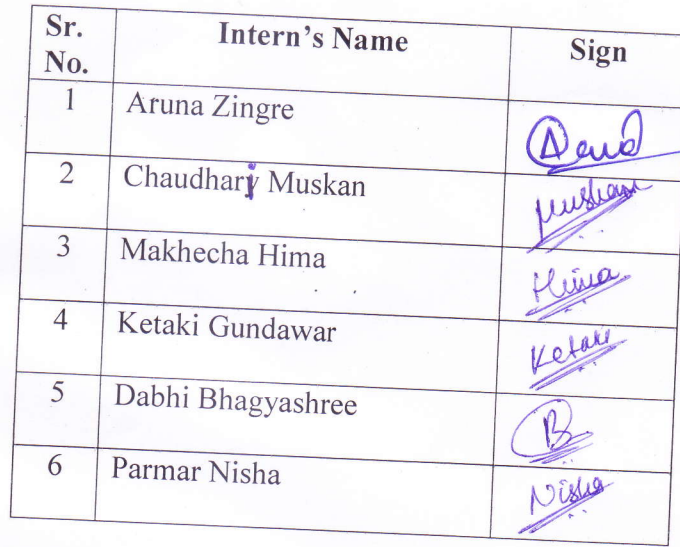 Sr. No. Intern's Name Sign
1 Aruna Zingre
2 Chaudhari Muskan Muskan
3 Makhecha Hima Hima
4 Ketaki Gundawar Ketaki
5 Dabhi Bhagyashree B
6 Parmar Nisha Nisha